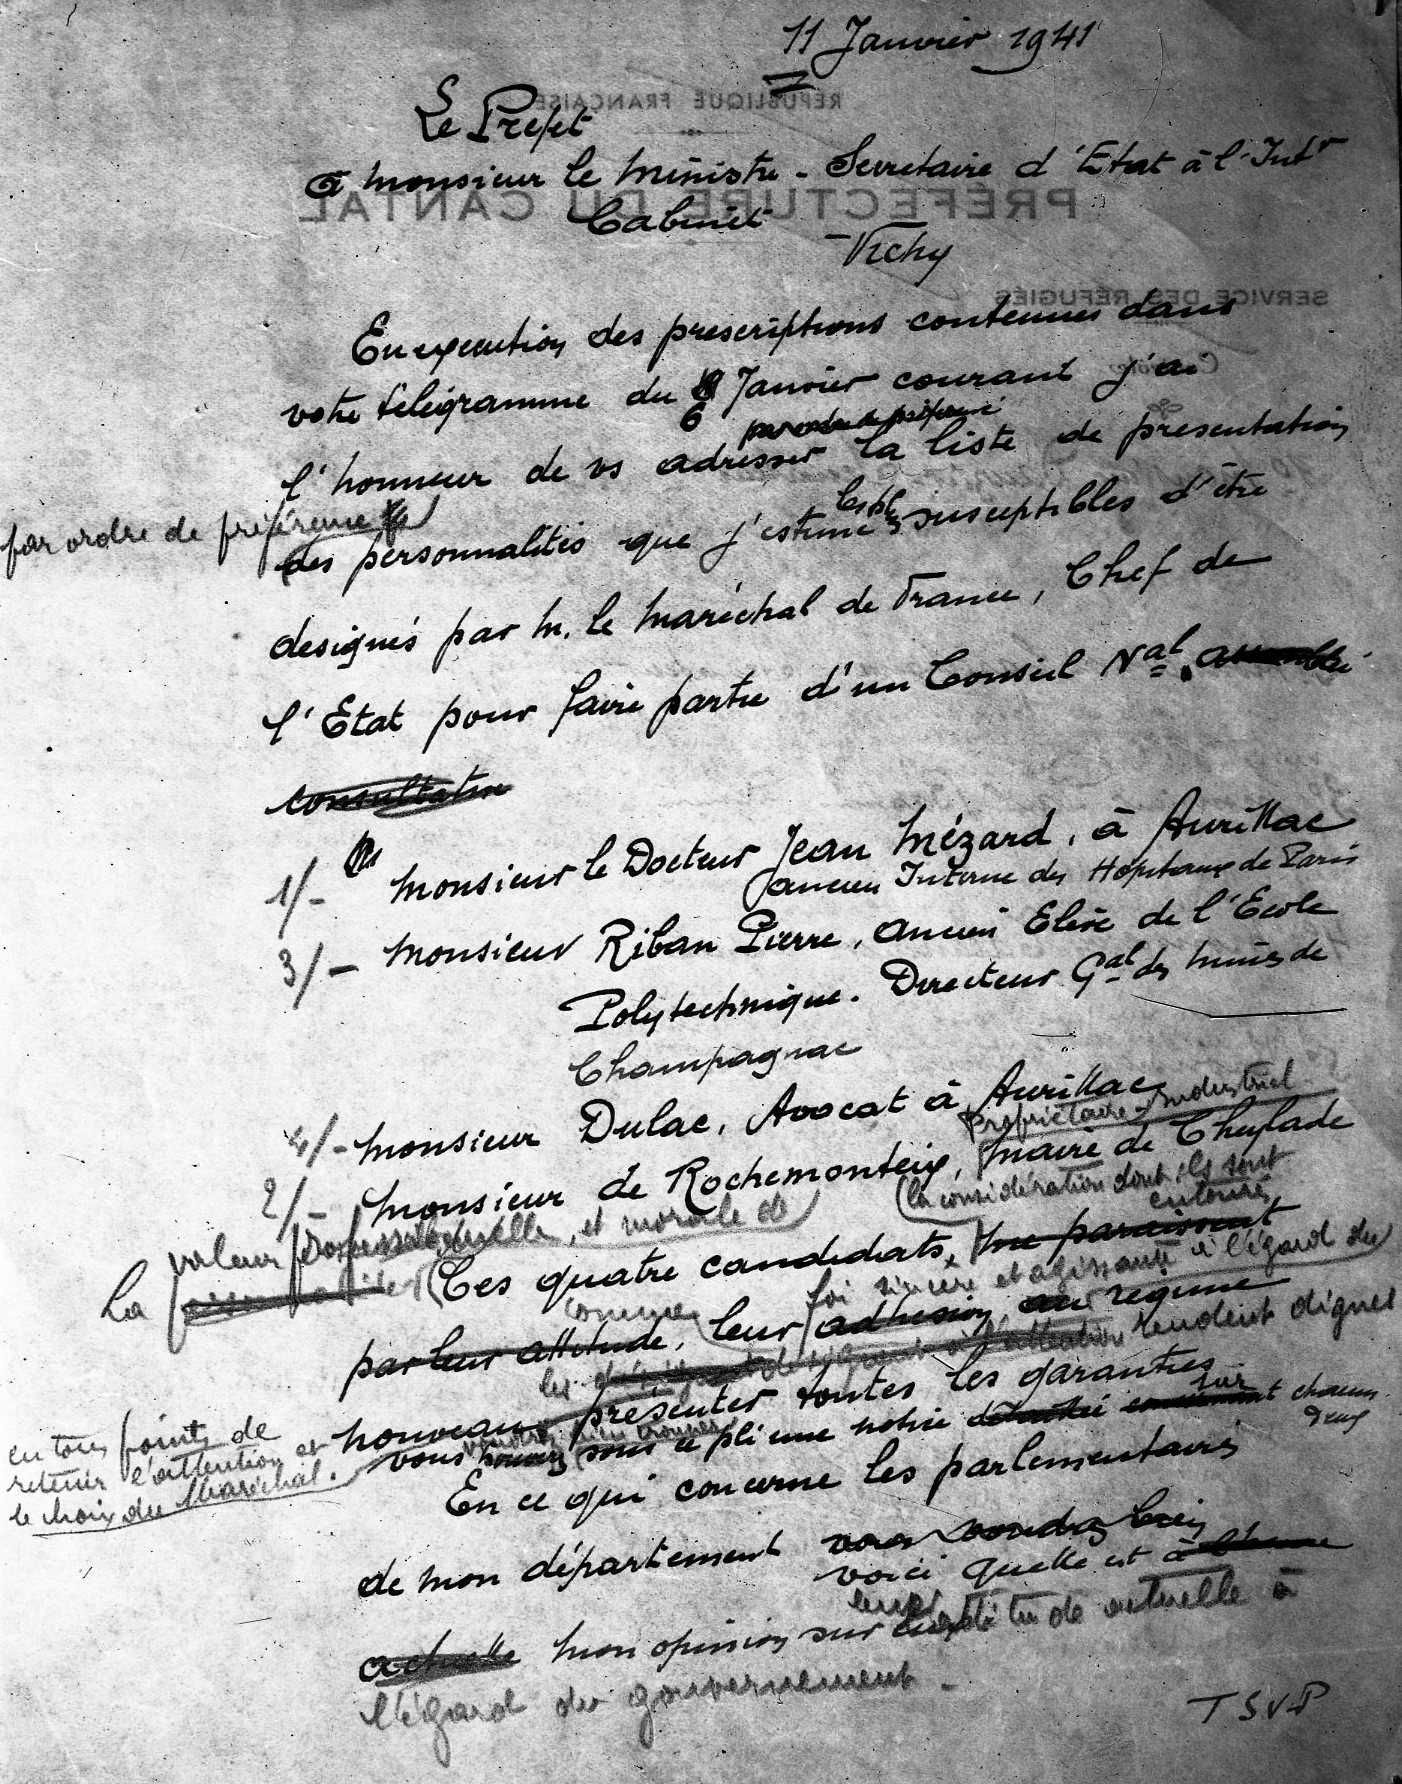 11 Janvier 1941
RÉPUBLIQUE FRANÇAISE
Le Préfet
à Monsieur le Ministre - Secrétaire d'Etat à l'Intr
PRÉFECTURE DU CANTAL
Cabinet
Vichy
SERVICE DES RÉFUGIÉS
En exécution des prescriptions contenues dans
votre télégramme du 8 Janvier courant j'ai
6
par ordre de préférence
l'honneur de vs adresser la liste de présentation
par ordre de préférence
des personnalités que j'estime susceptibles d'être
désignés par M. le Maréchal de France, Chef de
l'Etat pour faire partie d'un Conseil Nal. assemblée
consultative
1/- Monsieur le Docteur Jean Mézard, à Aurillac
ancien Interne des Hôpitaux de Paris
3/- Monsieur Riban Pierre, ancien Elève de l'Ecole
Polytechnique. Directeur Gal des mines de
Champagnac
4/- Monsieur Dulac, Avocat à Aurillac
Propriétaire - Industriel
2/- Monsieur de Rochemonteix, Maire de Cheylade
la considération dont ils sont
entourés
La valeur professionnelle, et morale de
Ces quatre candidats, me paraissent
foi sincère et agissante à l'égard du
comme
par leur attitude, leur adhésion au régime
les rendent dignes
nouveau, présenter toutes les garanties
en tous points de
retenir l'attention et
le choix du Maréchal.
vous sous ce pli une notice détaillée sur chacun
d'eux
En ce qui concerne les parlementaires
de mon département vous voudrez bien
voici quelle est à l'heure
actuelle mon opinion sur leur attitude actuelle à
l'égard du gouvernement.
TSVP